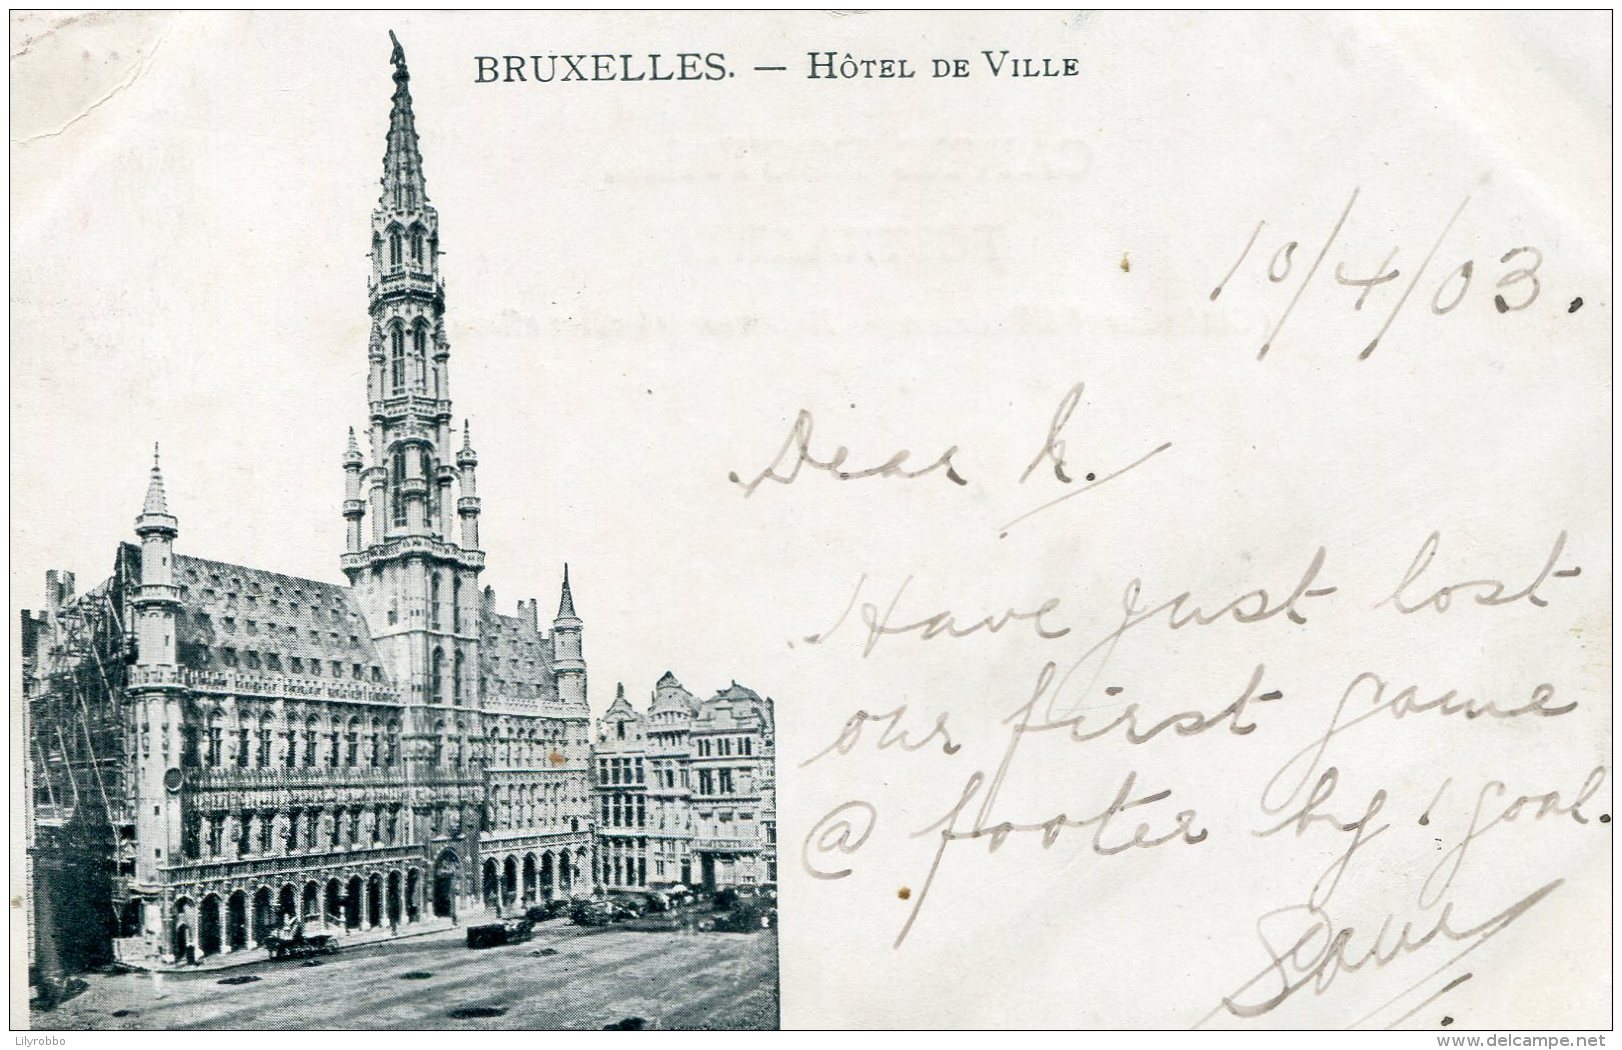 BRUXELLES. — HÔTEL DE VILLE
10/4/03.
Dear
Have just lost
our first game
@ footer by 1 goal.
Lilyrobbo
delcampe.net